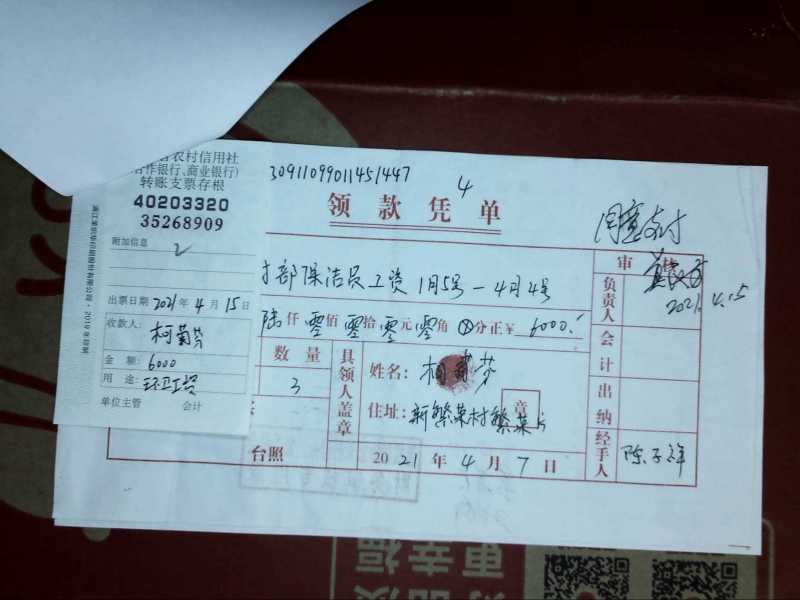 省农村信用社
合作银行、商业银行)
转账支票存根
40203320
35268909
附加信息
2
出票日期 2021年 4月 15日
收款人:
柯菊芬
金 额: 6000
用 途: 环卫工资
单位主管 会计
30911099011451447
4
领款凭单
同意支付
村部保洁员工资 1月5号-4月4号
陆仟零佰零拾零元零角⊗分正¥ 6000.-
审 核
2021.4.15
负责人
会计
出纳
经手人
陈子祥
数量
3
具领人盖章
姓名: 柯菊芬
住址: 新繁荣村繁荣片
章
台照
2021年 4月 7日
更幸福